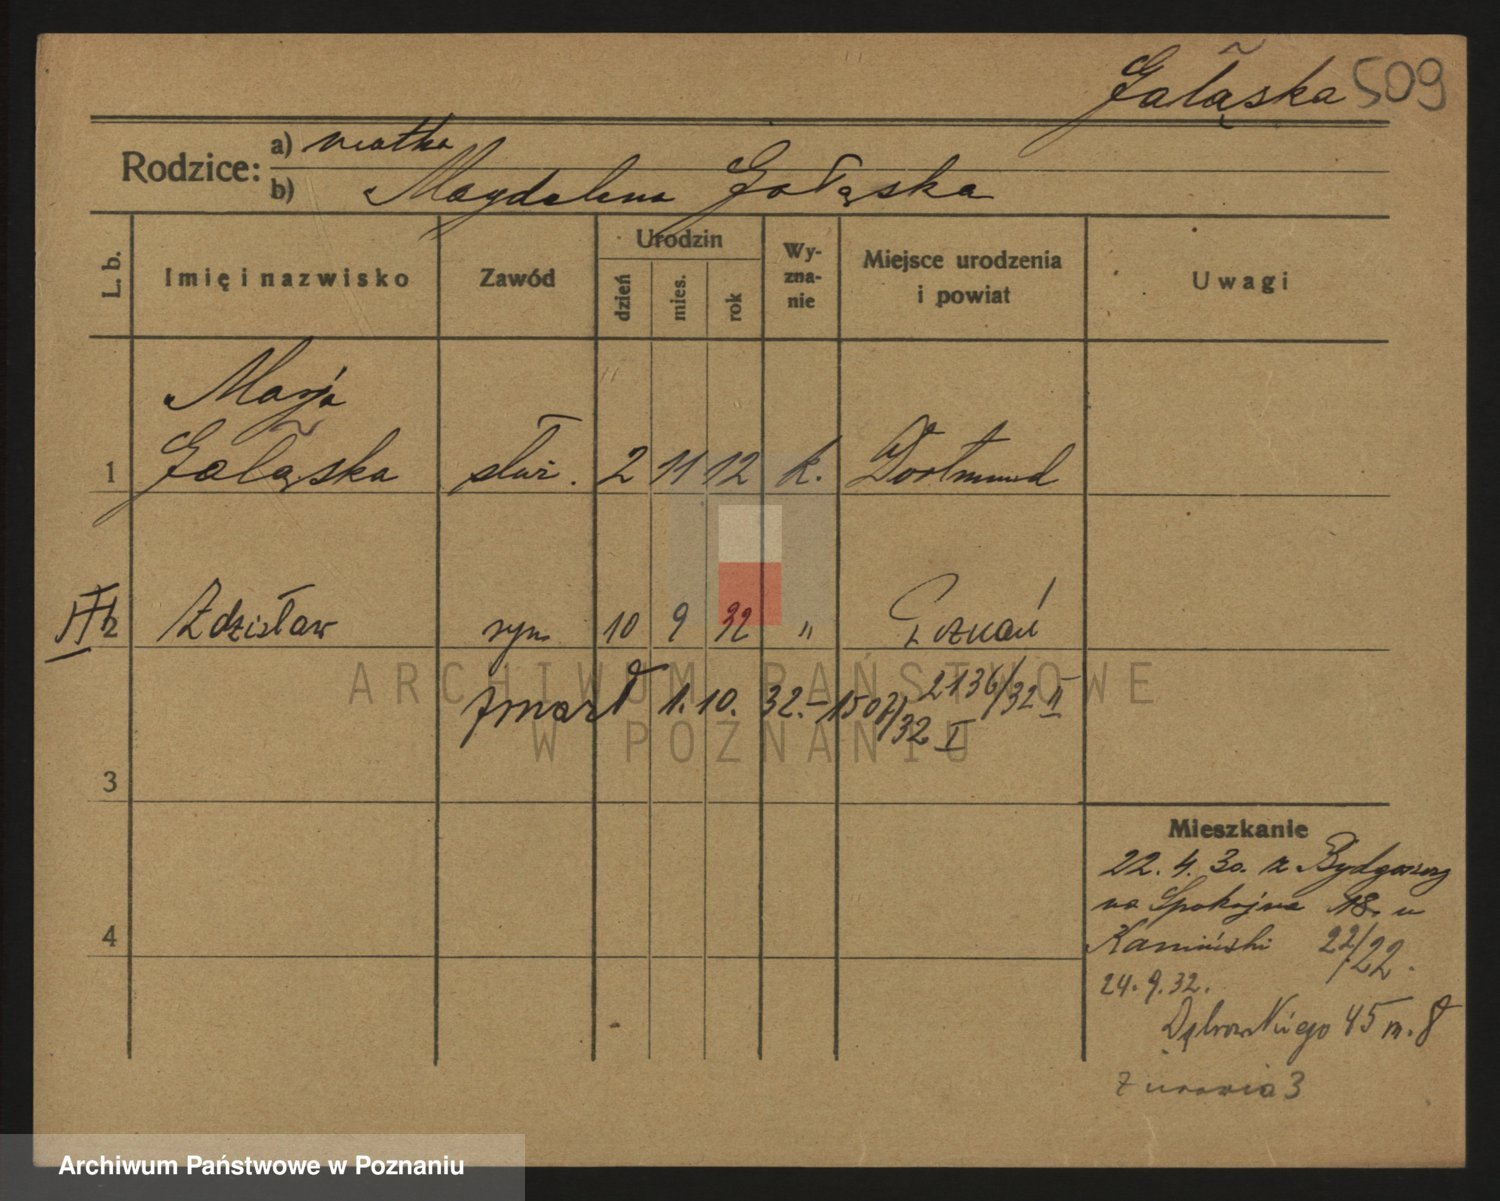 Gałąska 509
Rodzice: a) matka
b) Magdalena Gałąska
L. b. Imię i nazwisko Zawód Urodzin dzień mies. rok Wy-zna-nie Miejsce urodzenia i powiat Uwagi
Marja
1 Gałąska służ. 2 11 12 k. Dortmund
2 Zdzisław syn 10 9 32 " Poznań
2136/32 II
zmarł 1. 10. 32. - 1507/32 I
ARCHIWUM PAŃSTWOWE
W POZNANIU
3
4
Mieszkanie
22. 4. 30. z Bydgoszczy
na Spokojna 18. u
Kamiński 22/22.
24. 9. 32.
Dąbrowskiego 45 m. 8
Żurawia 3
Archiwum Państwowe w Poznaniu